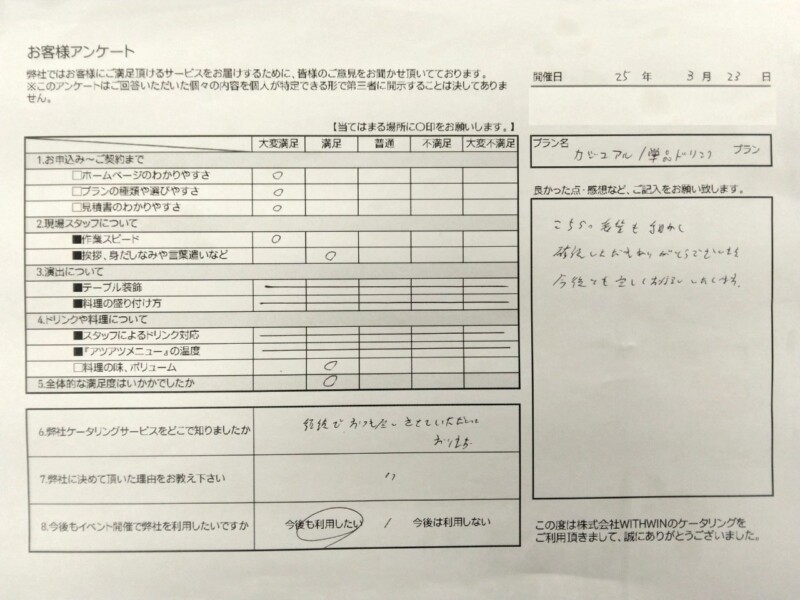 お客様アンケート
弊社ではお客様にご満足頂けるサービスをお届けするために、皆様のご意見をお聞かせ頂いてております。
※このアンケートはご回答いただいた個々の内容を個人が特定できる形で第三者に開示することは決してありません。
開催日 25年 3月 23日
【当てはまる場所に〇印をお願いします。】
大変満足 満足 普通 不満足 大変不満足
1.お申込み～ご契約まで
□ホームページのわかりやすさ ○
□プランの種類や選びやすさ ○
□見積書のわかりやすさ ○
2.現場スタッフについて
■作業スピード ○
■挨拶、身だしなみや言葉遣いなど ○
3.演出について
■テーブル装飾
■料理の盛り付け方
4.ドリンクや料理について
■スタッフによるドリンク対応
■『アツアツメニュー』の温度
□料理の味、ボリューム ○
5.全体的な満足度はいかがでしたか ○
6.弊社ケータリングサービスをどこで知りましたか
させていただいて
おります
7.弊社に決めて頂いた理由をお教え下さい
〃
8.今後もイベント開催で弊社を利用したいですか 今後も利用したい / 今後は利用しない
プラン名
カジュアル/単品ドリンク プラン
良かった点・感想など、ご記入をお願い致します。
こちらの
ありがとうございました
今後とも宜しくお願いいたします。
この度は株式会社WITHWINのケータリングを
ご利用頂きまして、誠にありがとうございました。